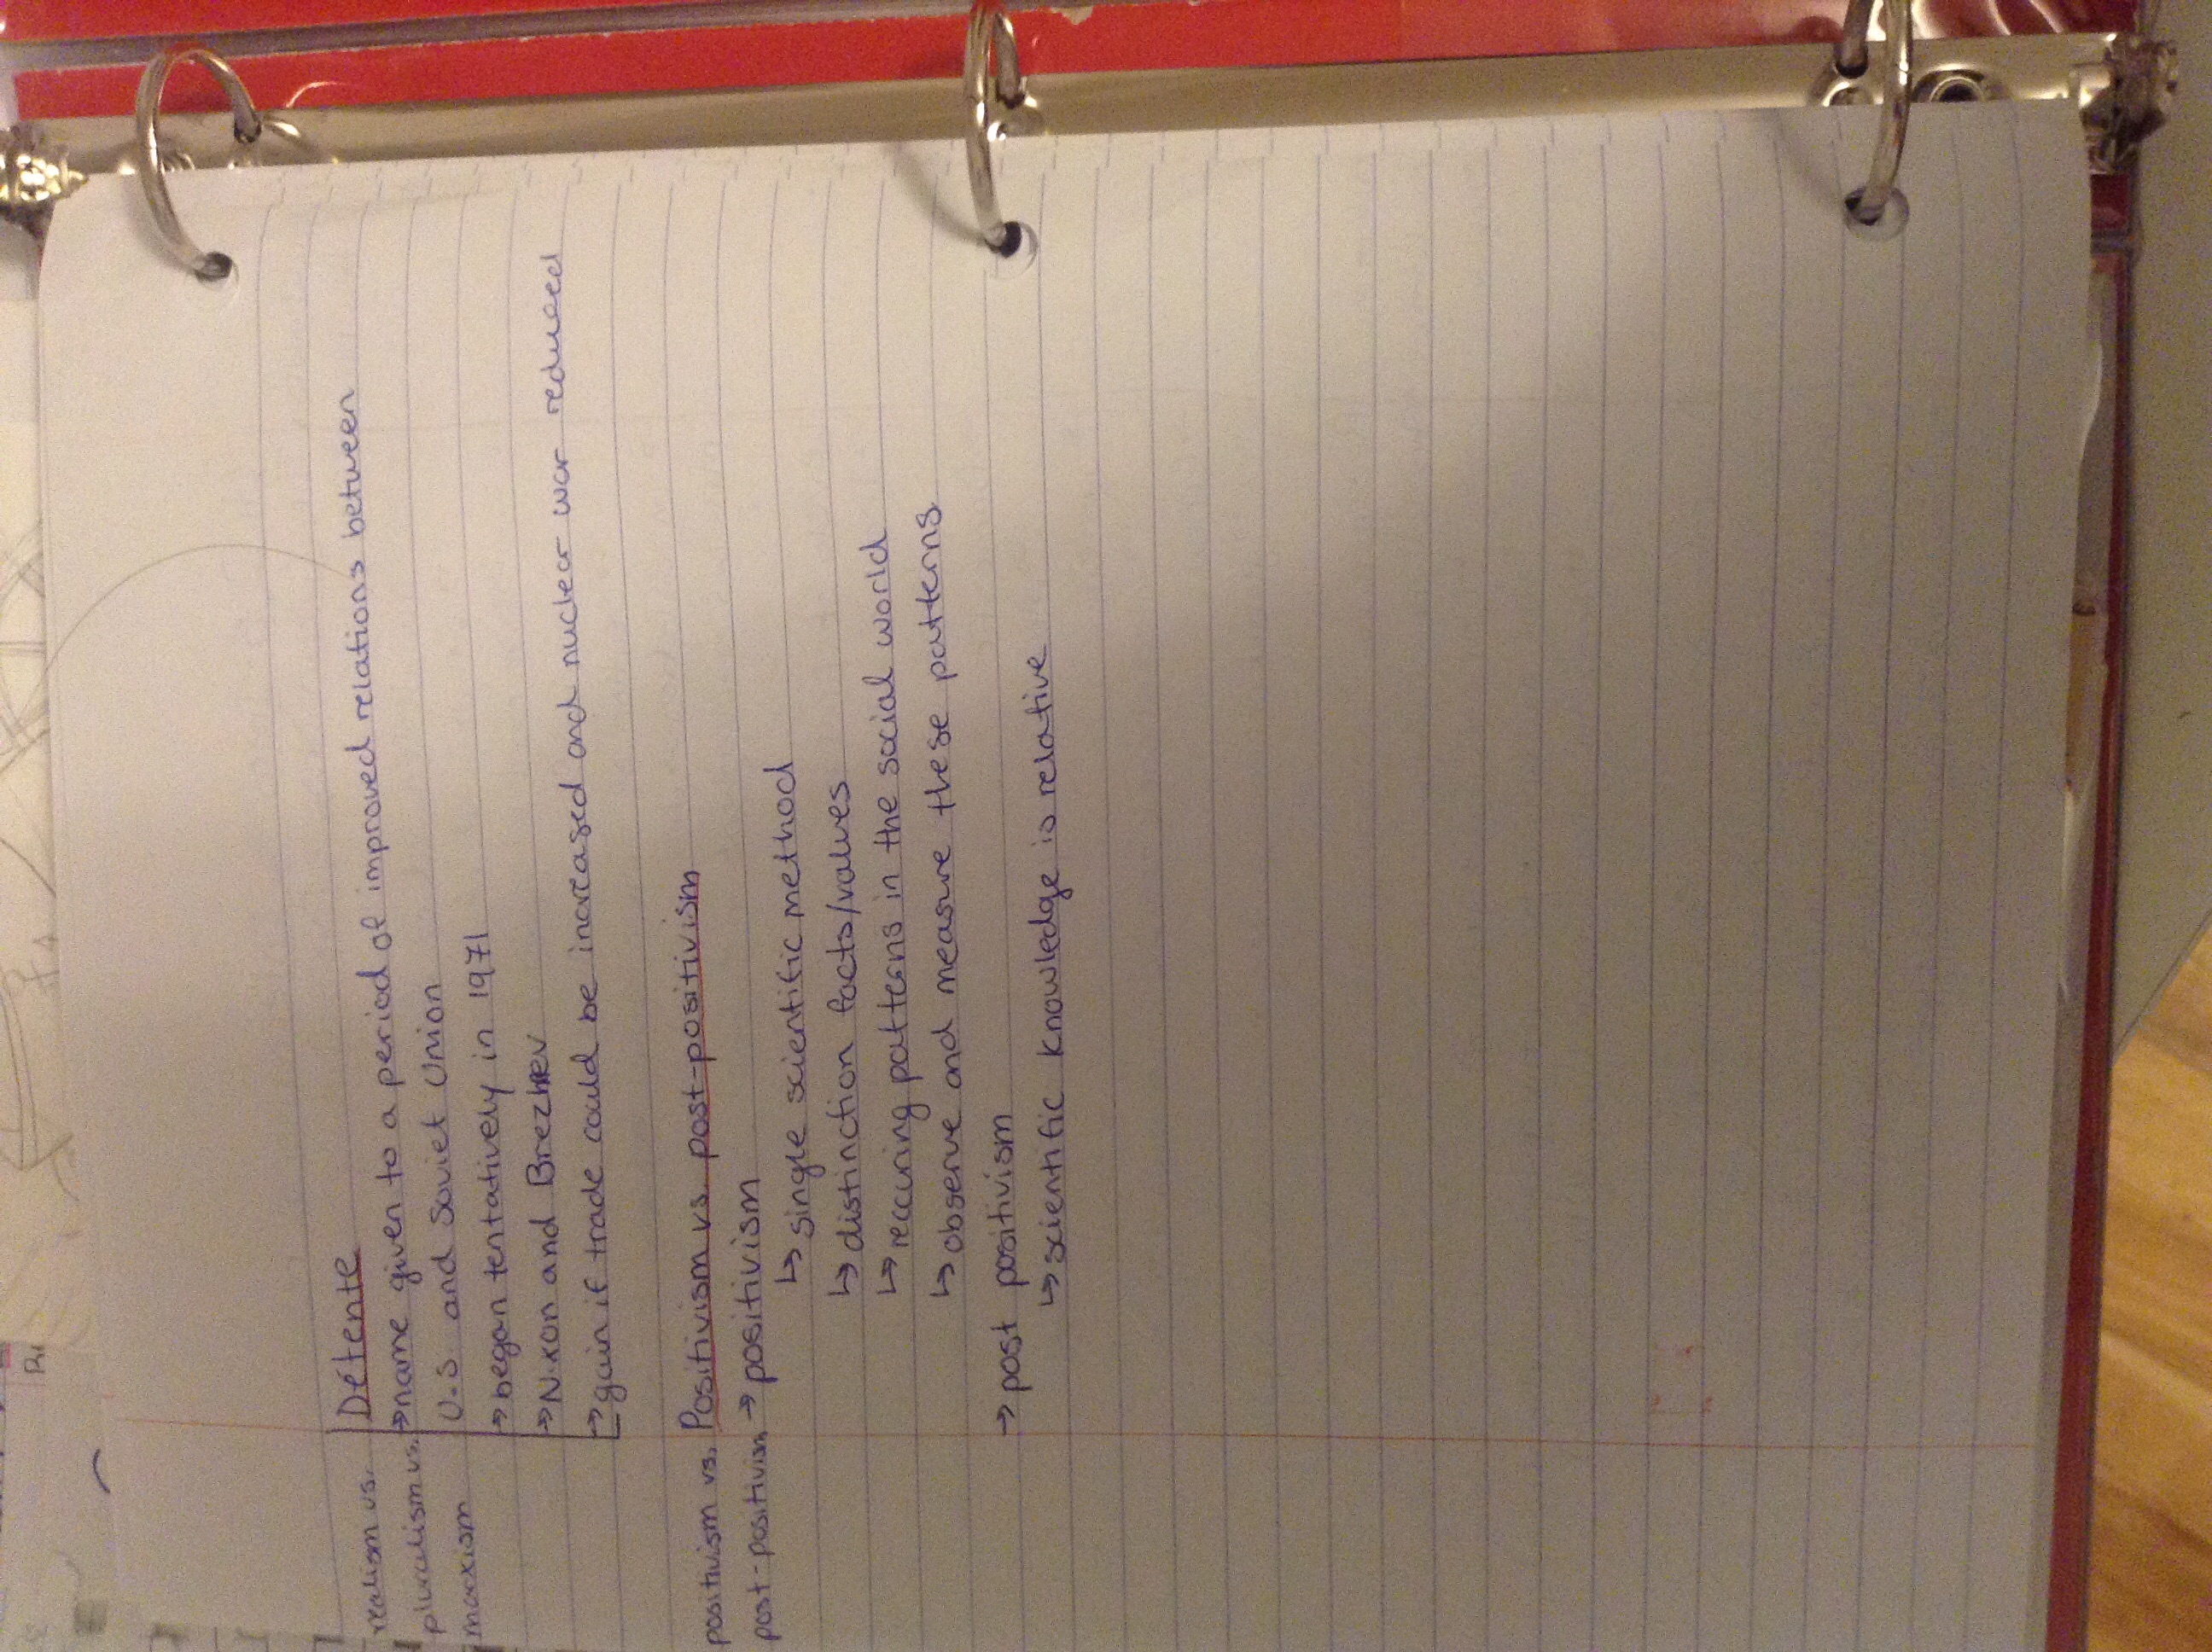 Détente
realism vs. → name given to a period of improved relations between
pluralism vs. U.S and Soviet Union
marxism → began tentatively in 1971
→ Nixon and Brezhnev
→ gain if trade could be increased and nuclear war reduced
positivism vs. Positivism vs. post-positivism
post-positivism → positivism
↳ single scientific method
↳ distinction facts/values
↳ reccuring patterns in the social world
↳ observe and measure these patterns
→ post positivism
↳ scientific knowledge is relative